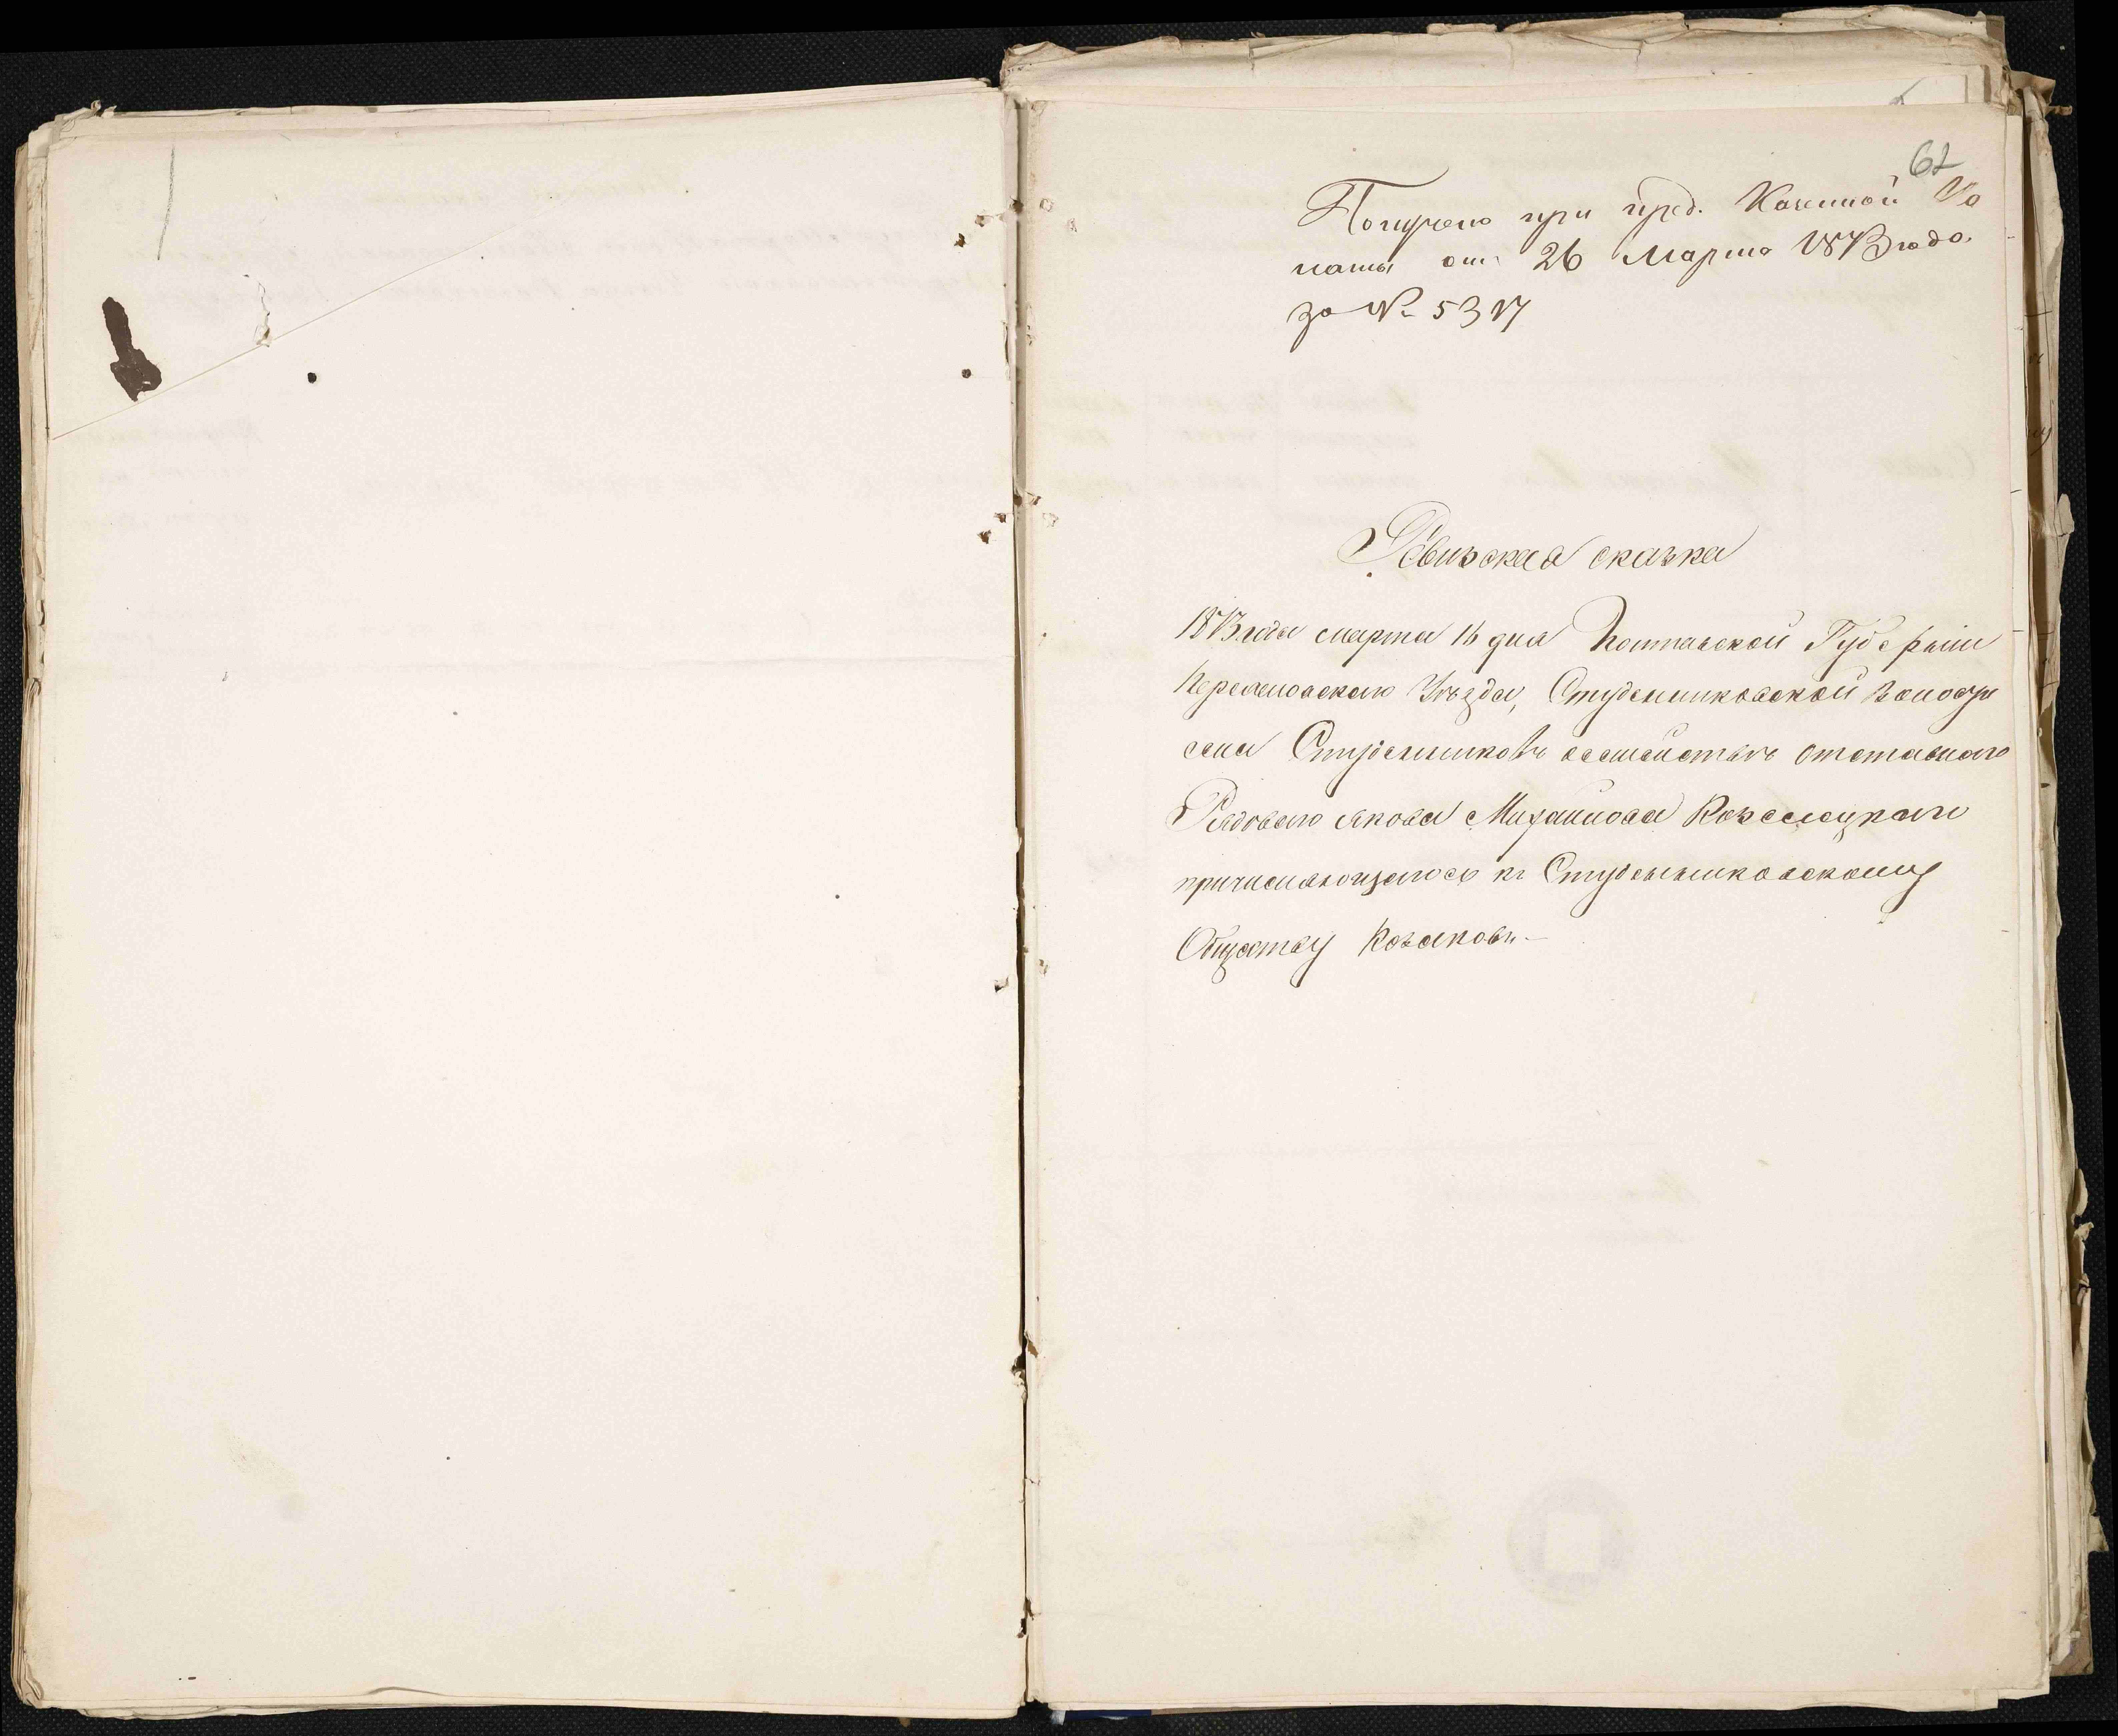 62
Получено при пред. Казенной Па
латы от 26 Марта 1873 года
за № 5317
Ревизская сказка
1873 года марта 16 дня Полтавской Губернии
Переяславскаго Уезда, Студениковской Волости
села Студениковъ о семействе отставнаго
Рядоваго Якова Михайлова Козелецкаго
причисляющагося къ Студениковскому
Обществу Козаковъ.—